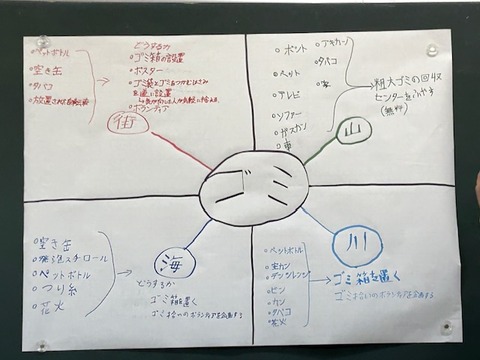 ペットボトル
空き缶
タバコ
放置された自転車
どうするか
ゴミ箱の設置
ポスター
ゴミ袋とゴミをつかむはさみ
を道に設置
ボランティア
街
ポット
ペット
テレビ
ソファー
ガスカン
車
アキカン
タバコ
粗大ゴミの回収
センターをふやす
(無料)
山
ゴミ
空き缶
発泡スチロール
ペットボトル
つり糸
花火
海
どうするか
ゴミ箱を置く
ゴミ拾いのボランティアを企画する
川
ペットボトル
空カン
ビン
カン
タバコ
花火
ゴミ箱を置く
ゴミ拾いのボランティアを企画する